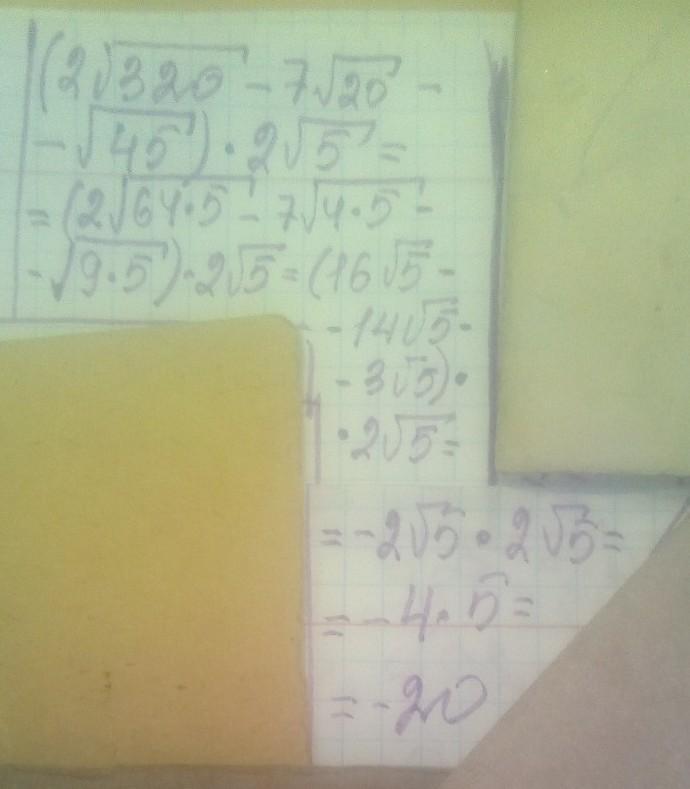 (2√320 - 7√20 -
- √45) · 2√5 =
= (2√64·5 - 7√4·5 -
- √9·5) · 2√5 = (16√5 -
- 14√5 -
- 3√5) ·
· 2√5 =
= -2√5 · 2√5 =
= -4 · 5 =
= -20